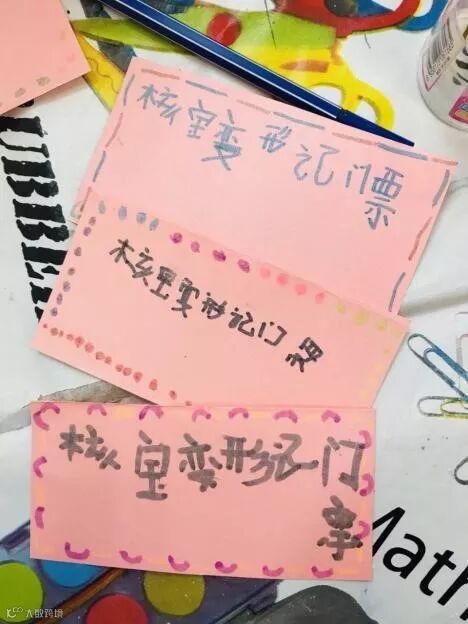 核宝变形记门票
核宝变形记门票
核宝变形记门
票
Math
大数跨境